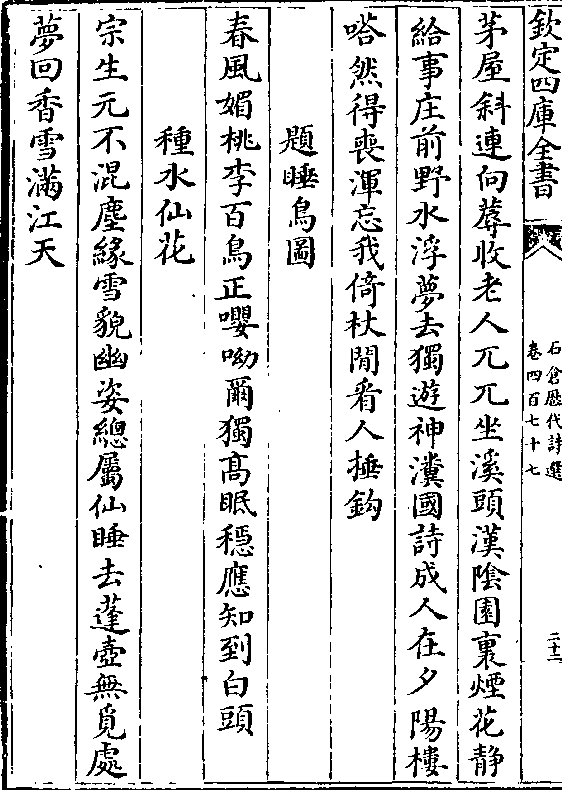 欽定四庫全書
石倉歴代詩選
卷四百七十七
二十二
茅屋斜連向蓐收老人兀兀坐溪頭漢陰園裏煙花静
給事庄前野水浮夢去獨遊神瀵國詩成人在夕陽樓
嗒然得喪渾忘我倚杖閒看人捶鈎
題睡鳥圖
春風媚桃李百鳥正嚶呦爾獨髙眠穏應知到白頭
種水仙花
宗生元不混塵緣雪貌幽姿總屬仙睡去蓬壺無覓處
夢回香雪滿江天